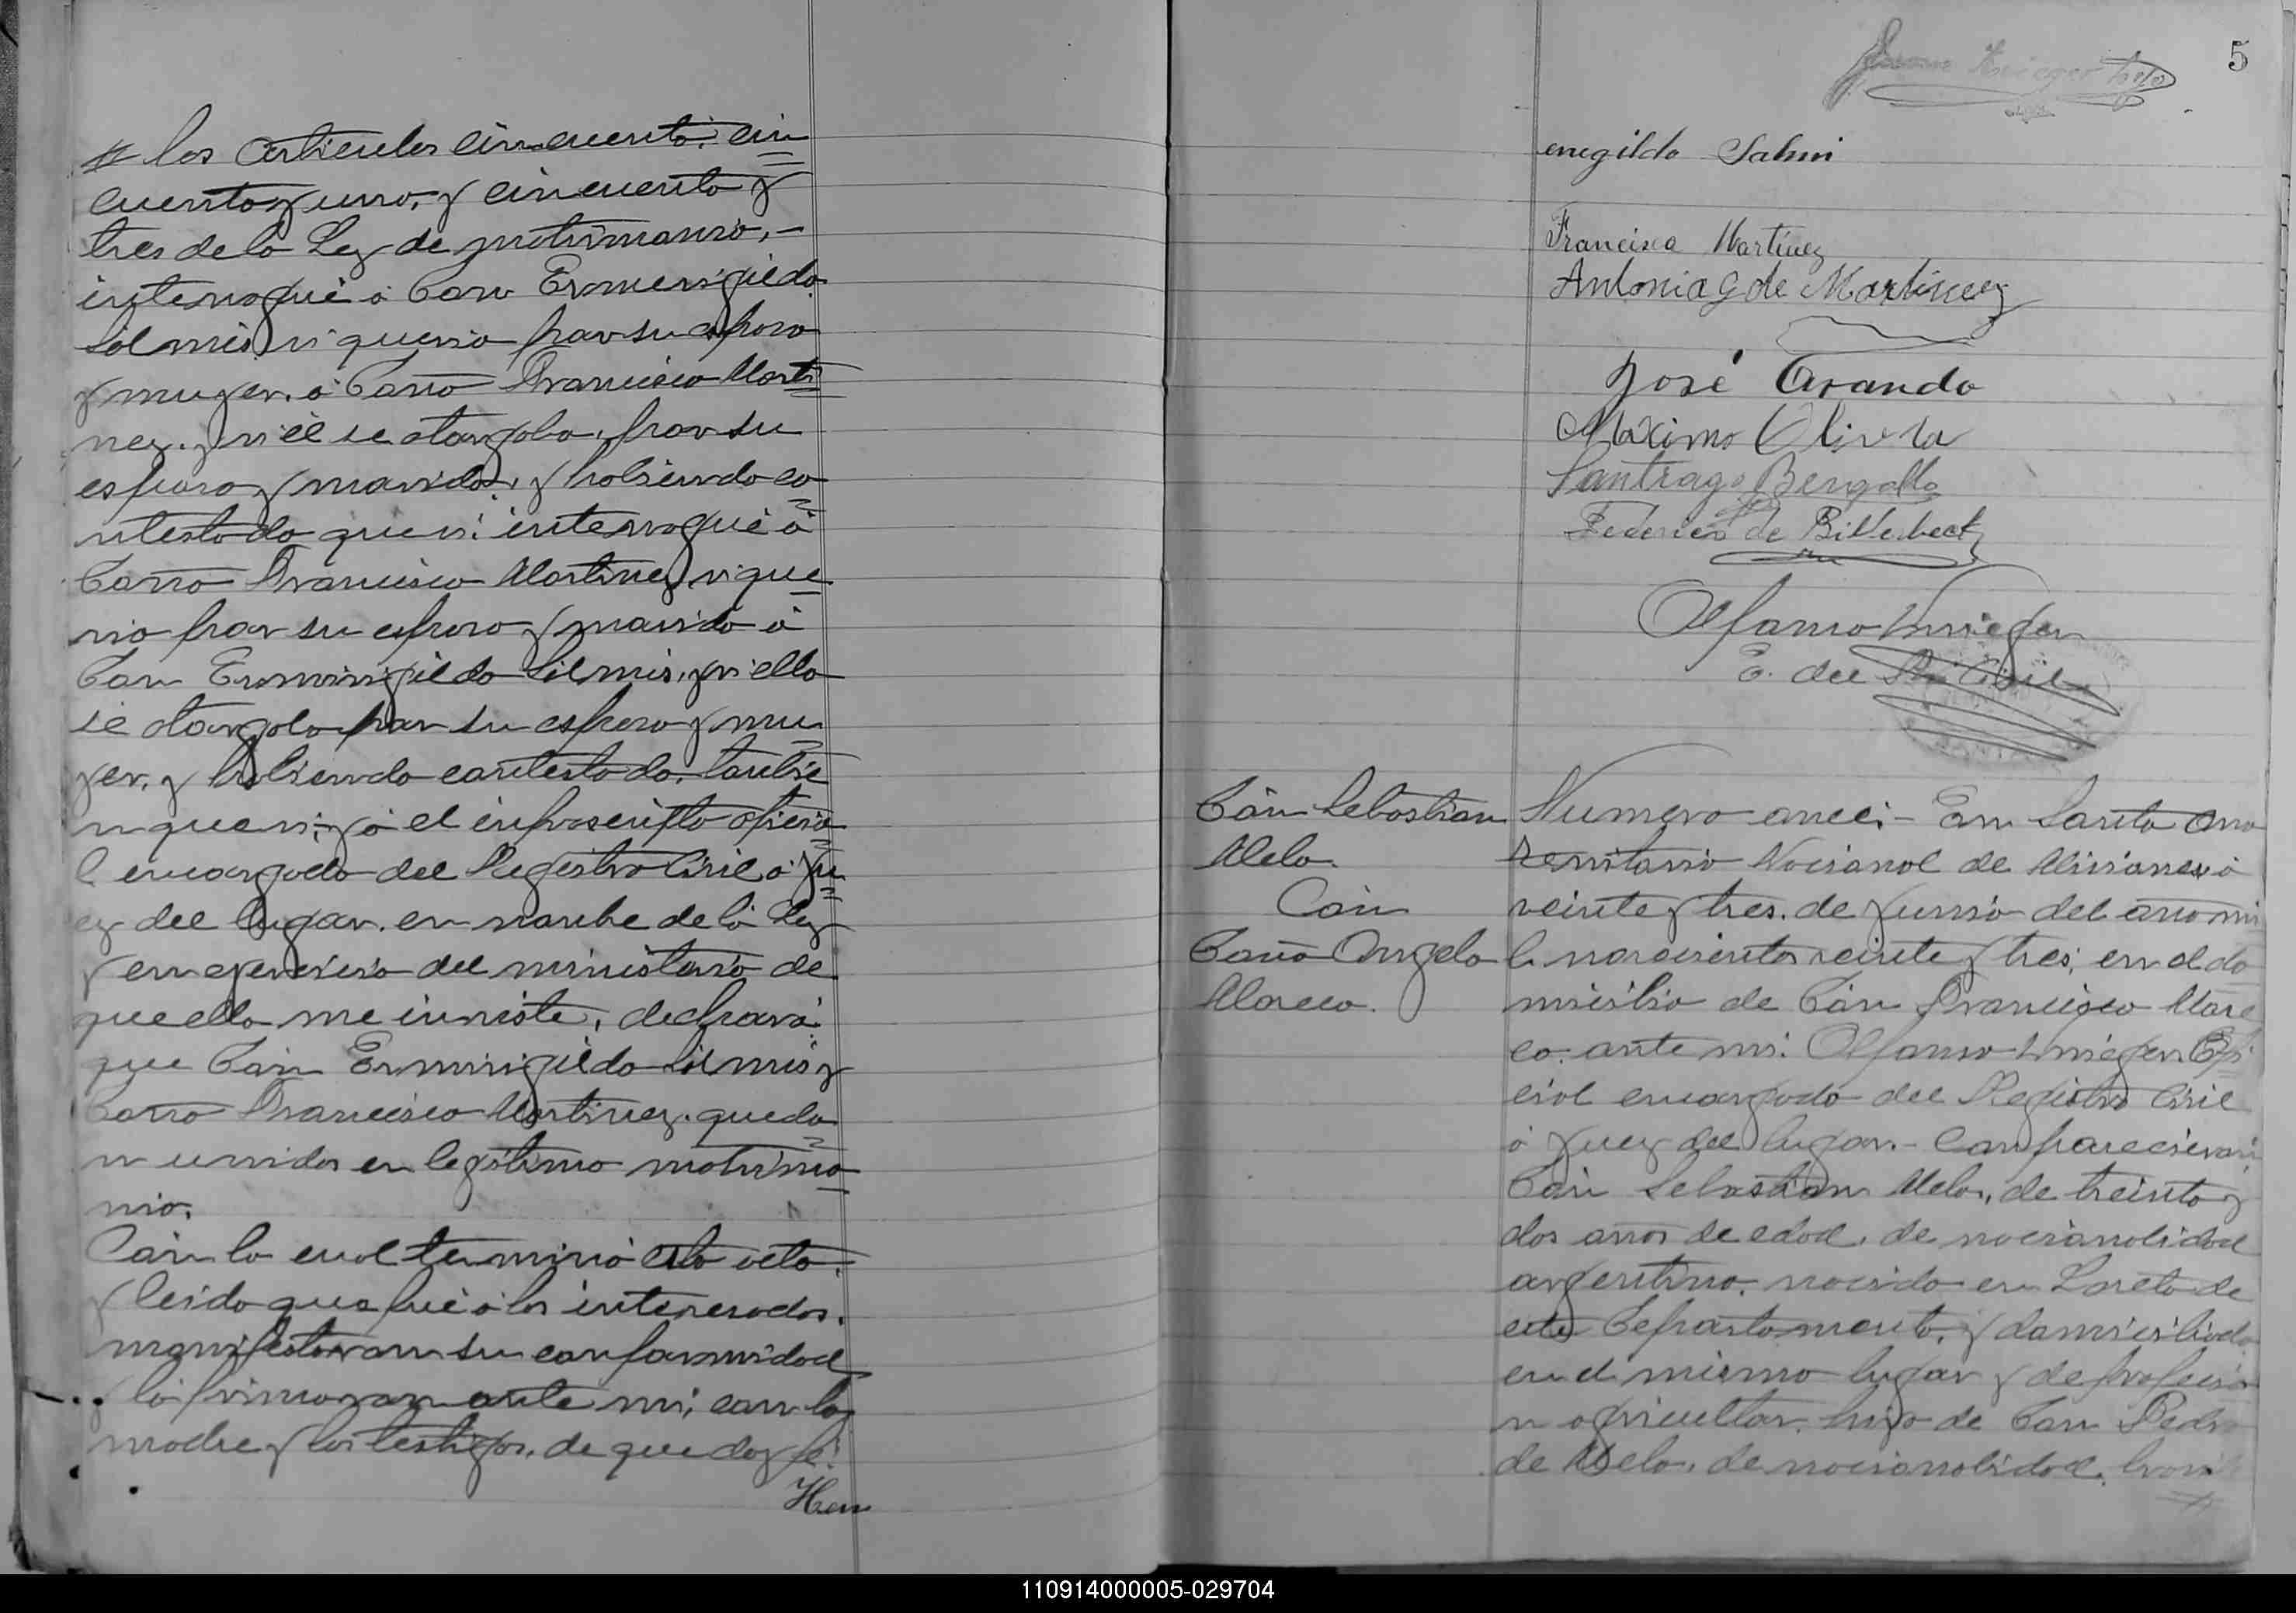 los articulos cincuenta. cin
cuenta y uno, y cincuenta y
tres de la Ley de matrimonio, -
interrogué á Don Ermenigildo
Silmis si queria por su esposa
y muyer. á Doña Francisca Marti
nez. y si él se otorgaba, por su
esposo y marido, y habiendo co
ntestado que si: interrogué á
Doña Francisca Martinez si que
ria por su esposo y marido á
Don Erminigildo Silmis, y si ella
se otorgaba por su esposa y mu
yer, y habiendo contestado, tambie
n que si; yo el infrascripto oficia
l encargado del Registro Civil ó Ju
ez del lugar. en nombre de la Ley
y en ejercicio del ministerio de
que ella me inviste, declaro:
que Don Erminigildo Silmis y
Doña Francisca Martinez. queda
n unidos en legítimo matrimo
nio.
Con lo cual terminó esta acta.
y leida que fué á los interesados.
manifestaron su conformidad
y la firmaron ante mi, con la
madre y los testigos. de que doy fé.
Her
5
enegildo Salmi
Francisca Martinez
Antonia G de Martinez
José Aranda
Maximo Olivera
Santiago Bergallo
Federico de Bitlerbeck
Alfonso Krieger
E. del R. Civil
Don Sebastian
Melo.
Con
Doña Angela
Mareco.
Numero once; - En Santa Ana
Territorio Nacional de Misiones á
veinte y tres. de Junio del año mi
l novecientos veinte y tres, en el do
micilio de Don Francisco Mare
co. ante mi: Alfonso Krieger. Ofi
cial encargado del Registro Civil
ó Juez del lugar. - Comparecieron:
Don Sebastian Melo, de treinta y
dos años de edad, de nacionalidad
argentina, nacido en Loreto de
este Departamento, y domiciliado
en el mismo lugar y de profesió
n agricultor. hijo de Don Pedro
de Melo, de nacionalidad, brasi
110914000005-029704